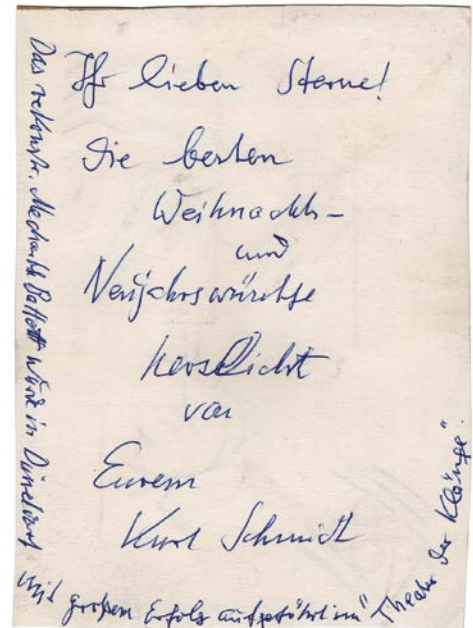 Ihr lieben Sterne!
Die besten
Weihnachts-
und
Neujahrswünsche
herzlichst
von
Eurem
Kurt Schmidt
Das rekonstr. Mechanische Ballett wurde in Düsseldorf
mit großem Erfolg aufgeführt im "Theater der Klänge".